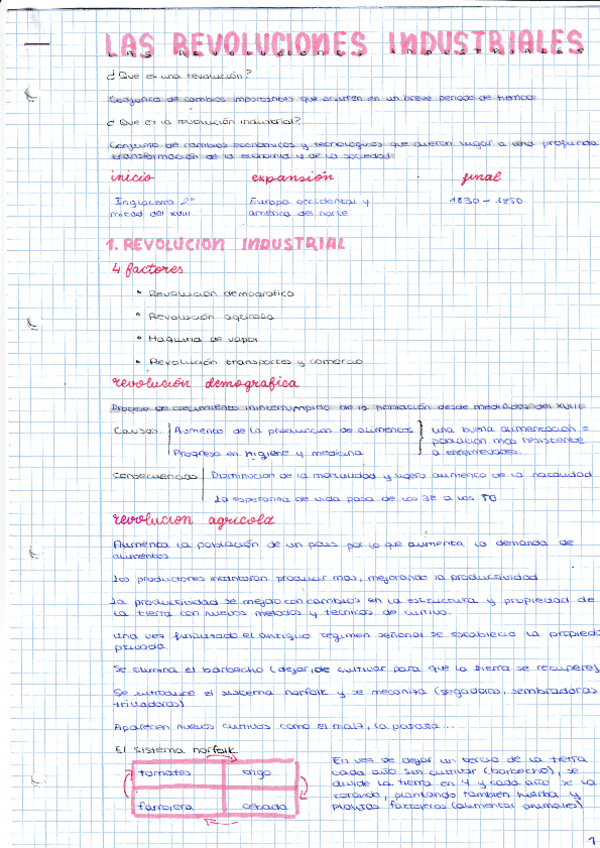 LAS REVOLUCIONES INDUSTRIALES
¿Que es una revolución?
Conjunto de cambios importantes que ocurren en un breve periodo de tiempo
¿Que es la revolución industrial?
Conjunto de cambios económicos y tecnológicos que dieron lugar a una profunda
transformación de la economia y de la sociedad
inicio expansión final
Inglaterra 2º Europa occidental y 1830 - 1850
mitad del XVIII america del norte
1. REVOLUCION INDUSTRIAL
4 factores
• Revolución demografica
• Revolución agricola
• Maquina de vapor
• Revolución transportes y comercio
revolución demografica
Proceso de crecimiento ininterrumpido de la población desde mediados del XVIII
Causas Aumento de la produccion de alimentos una buena alimentación =
población mas resistente
Progreso en higiene y medicina a enfermedades
Consecuencias Disminucion de la mortalidad y ligero aumento de la natalidad
La esperanza de vida pasa de los 38 a los
revolucion agricola
Aumenta la población de un pais por lo que aumenta la demanda de
alimentos
Los productores intentaron producir mas, mejorando la productividad
La productividad se mejoro con cambios en la estructura y propiedad de
la tierra con nuevos metodos y tecnicas de cultivo.
Una vez finalizado el antiguo regimen señorial se establecio la propieda
privada
Se elimina el barbecho (dejar de cultivar para que la tierra se recupere)
Se introduce el sistema norfolk y se mecaniza (segadoras, sembradoras
trilladoras)
Aparecen nuevos cultivos como el maiz, la patata...
El sistema norfolk
tomates trigo
farrajera cebada
En vez de dejar un tercio de la tierra
cada año sin cultivar (barbecho), se
divide la tierra en 4 y cada año se va
rotando, plantando tambien hierba y
plantas farrajeras (alimentar animales)
1